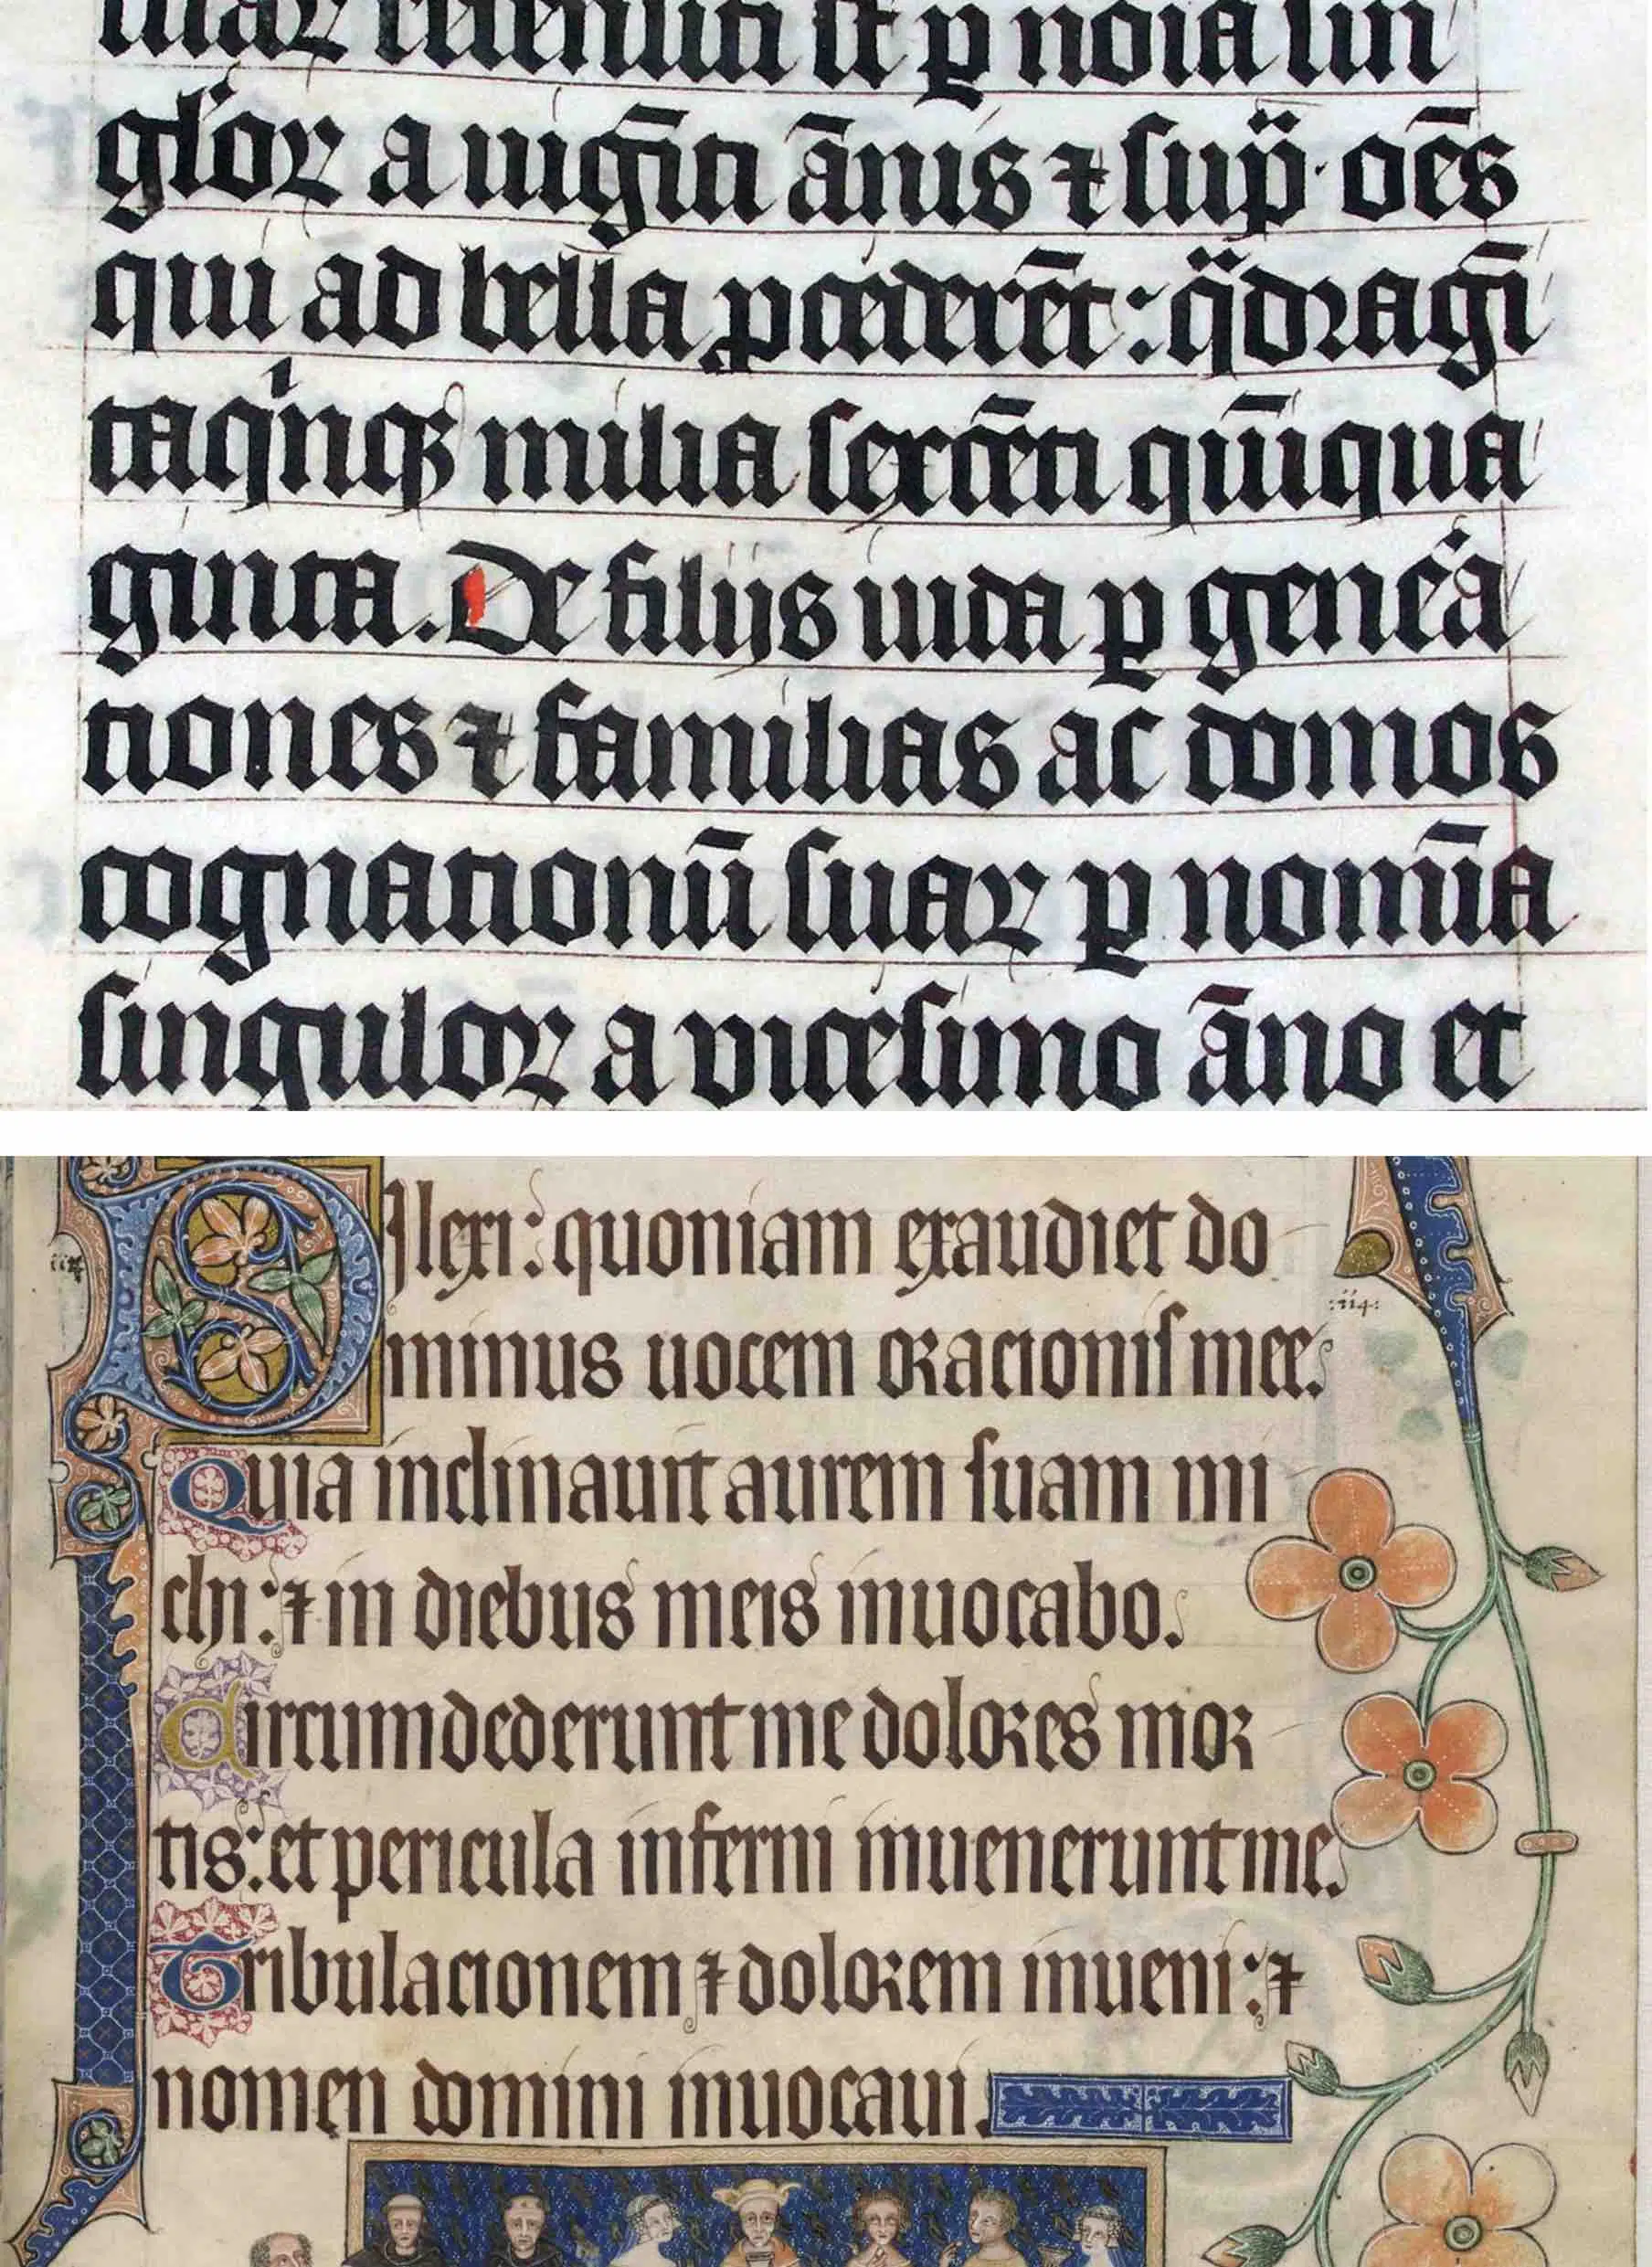 suaꝝ recensiti st ꝑ noĩa sin
gl'oꝝ a uigīti ānis ⁊ sup̈· oēs
qui ad bella ꝓcederēt: qͣdragī
taqⁱnqꝫ milia sexcēti qūiqua
ginta. De filijs iuda ꝑ gene͛a
tiones ⁊ familias ac domos
cognationū suaꝝ ꝑ nomīa
singuloꝝ a vicesimo āno et
Dilexi: quoniam exaudiet do
minus uocem oracionis mee.
Quia inclinauit aurem suam mi
chi: ⁊ in diebus meis inuocabo.
Circumdederunt me dolores mor
tis: et pericula inferni inuenerunt me.
Tribulacionem ⁊ dolorem inueni: ⁊
nomen domini inuocaui.